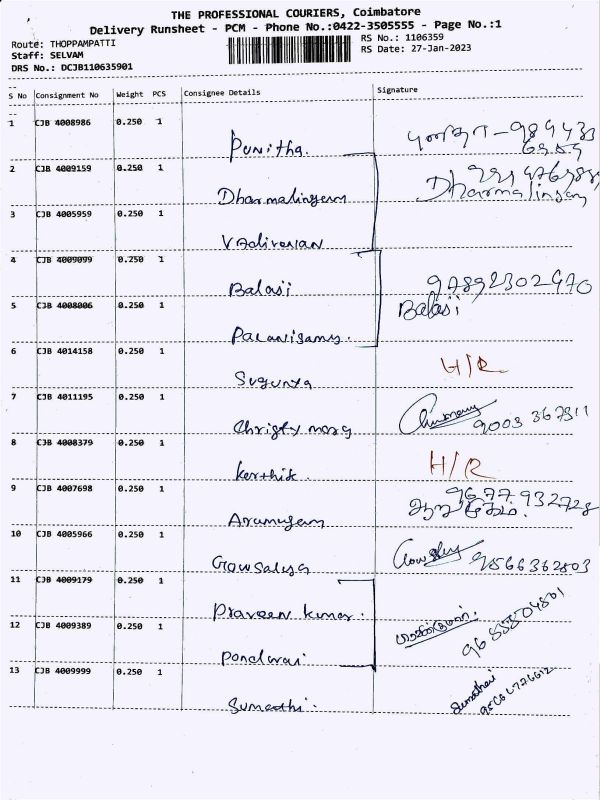 THE PROFESSIONAL COURIERS, Coimbatore
Delivery Runsheet - PCM - Phone No.:0422-3505555 - Page No.:1
Route: THOPPAMPATTI
RS No.: 1106359
Staff: SELVAM
RS Date: 27-Jan-2023
DRS No.: DCJB110635901
S No Consignment No Weight PCS Consignee Details Signature
1 CJB 4008986 0.250 1
Punitha.
2 CJB 4009159 0.250 1
Dharmalingam Dharmalingam
3 CJB 4005959 0.250 1
4 CJB 4009099 0.250 1
Balaji 97892302470
5 CJB 4008006 0.250 1 Balaji
Palanisamy.
6 CJB 4014158 0.250 1 H/R
Sugunya
7 CJB 4011195 0.250 1
Christy mary 9003 367311
8 CJB 4008379 0.250 1
Karthik. H/R
9 CJB 4007698 0.250 1 9677 932728
Arumugam
10 CJB 4005966 0.250 1
Gowsalya Gowsalya 9566362803
11 CJB 4009179 0.250 1
Praveen Kumar.
12 CJB 4009389 0.250 1
Pondurai
13 CJB 4009999 0.250 1
Sumathi.